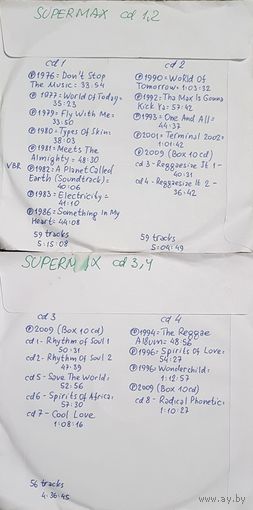 SUPERMAX cd 1,2
cd 1
℗ 1976 = Don't Stop
The Music = 33:54
℗ 1977 = World Of Today =
35:23
℗ 1979 = Fly With Me =
33:50
℗ 1980 = Types Of Skin =
38:03
℗ 1981 = Meets The
Almighty = 48:30
VBR ℗ 1982 = A Planet Called
Earth (Soundtrack) =
40:06
℗ 1983 = Electricity =
41:10
℗ 1986 = Something In My
Heart = 44:08
59 tracks
5:15:08
cd 2
℗ 1990 = World Of
Tomorrow = 1:03:32
℗ 1992 = Tha Max Is Gonna
Kick Ya = 57:42
℗ 1993 = One And All =
44:37
℗ 2001 = Terminal 2002 =
1:01:42
℗ 2009 (Box 10 cd)
cd 3 - Reggaesize It 1 -
40:31
cd 4 - Reggaesize It 2 -
36:42
59 tracks
5:04:49
SUPERMAX cd 3,4
cd 3
℗ 2009 (Box 10 cd)
cd 1 - Rhythm Of Soul 1
50:31
cd 2 - Rhythm Of Soul 2
47:39
cd 5 - Save The World =
52:56
cd 6 - Spirits Of Africa =
57:30
cd 7 - Cool Love
1:08:16
56 tracks
4:36:45
cd 4
℗ 1994 = The Reggae
Album = 48:56
℗ 1996 = Spirits Of Love =
54:27
℗ 1996 = Wonderchild =
1:12:57
℗ 2009 (Box 10 cd)
cd 8 - Radical Phonetic =
1:10:27
ay.by